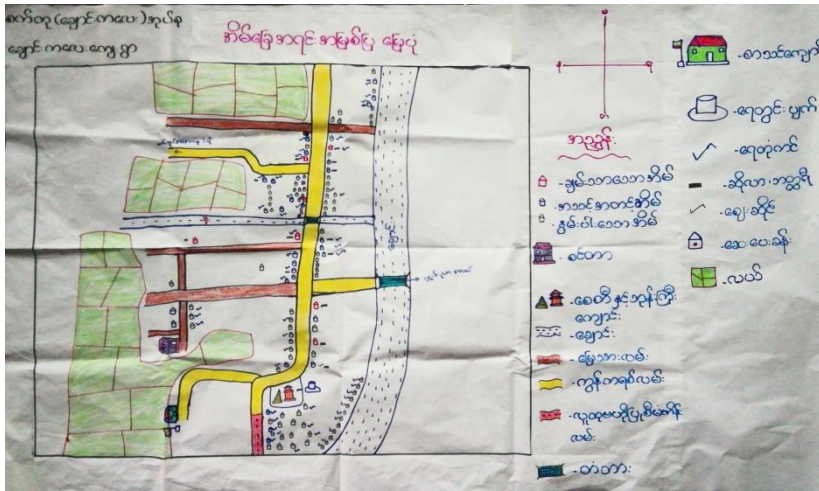 စက်တူ(ချောင်ကလေး)အုပ်စု
ချောင်ကလေးကျေးရွာ
အိမ်ခြေအရင်းအမြစ်ပြ မြေပုံ
အညွှန်း
-ချမ်းသာသောအိမ်
-အသင့်အတင့်အိမ်
-နွမ်းပါးသောအိမ်
-စေတီနှင့်ဘုန်းကြီး
ကျောင်း
-ချောင်း
-မြေသားလမ်း
-ကွန်ကရစ်လမ်း
-လူထုဗဟိုပြုစီမံကိန်း
လမ်း
-တံတား
-စာသင်ကျောင်း
-ရေတွင်းပျက်
-ရေတုံကင်
-ဆိုလာဘတ္ထရီ
-ဈေးဆိုင်
-ဆေးပေးခန်း
-လယ်